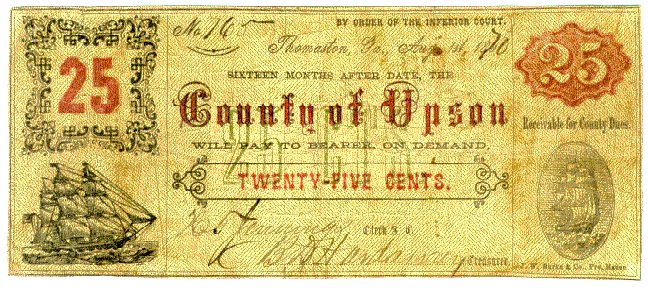 No. 765
BY ORDER OF THE INFERIOR COURT.
Thomaston, Ga., Aug 1st, 1870
25
25
SIXTEEN MONTHS AFTER DATE, THE
County of Upson
Receivable for County Dues.
25 CTS
WILL PAY TO BEARER, ON DEMAND,
TWENTY-FIVE CENTS.
Clerk I. C.
Treasurer
J. W. Burke & Co., Prs, Macon